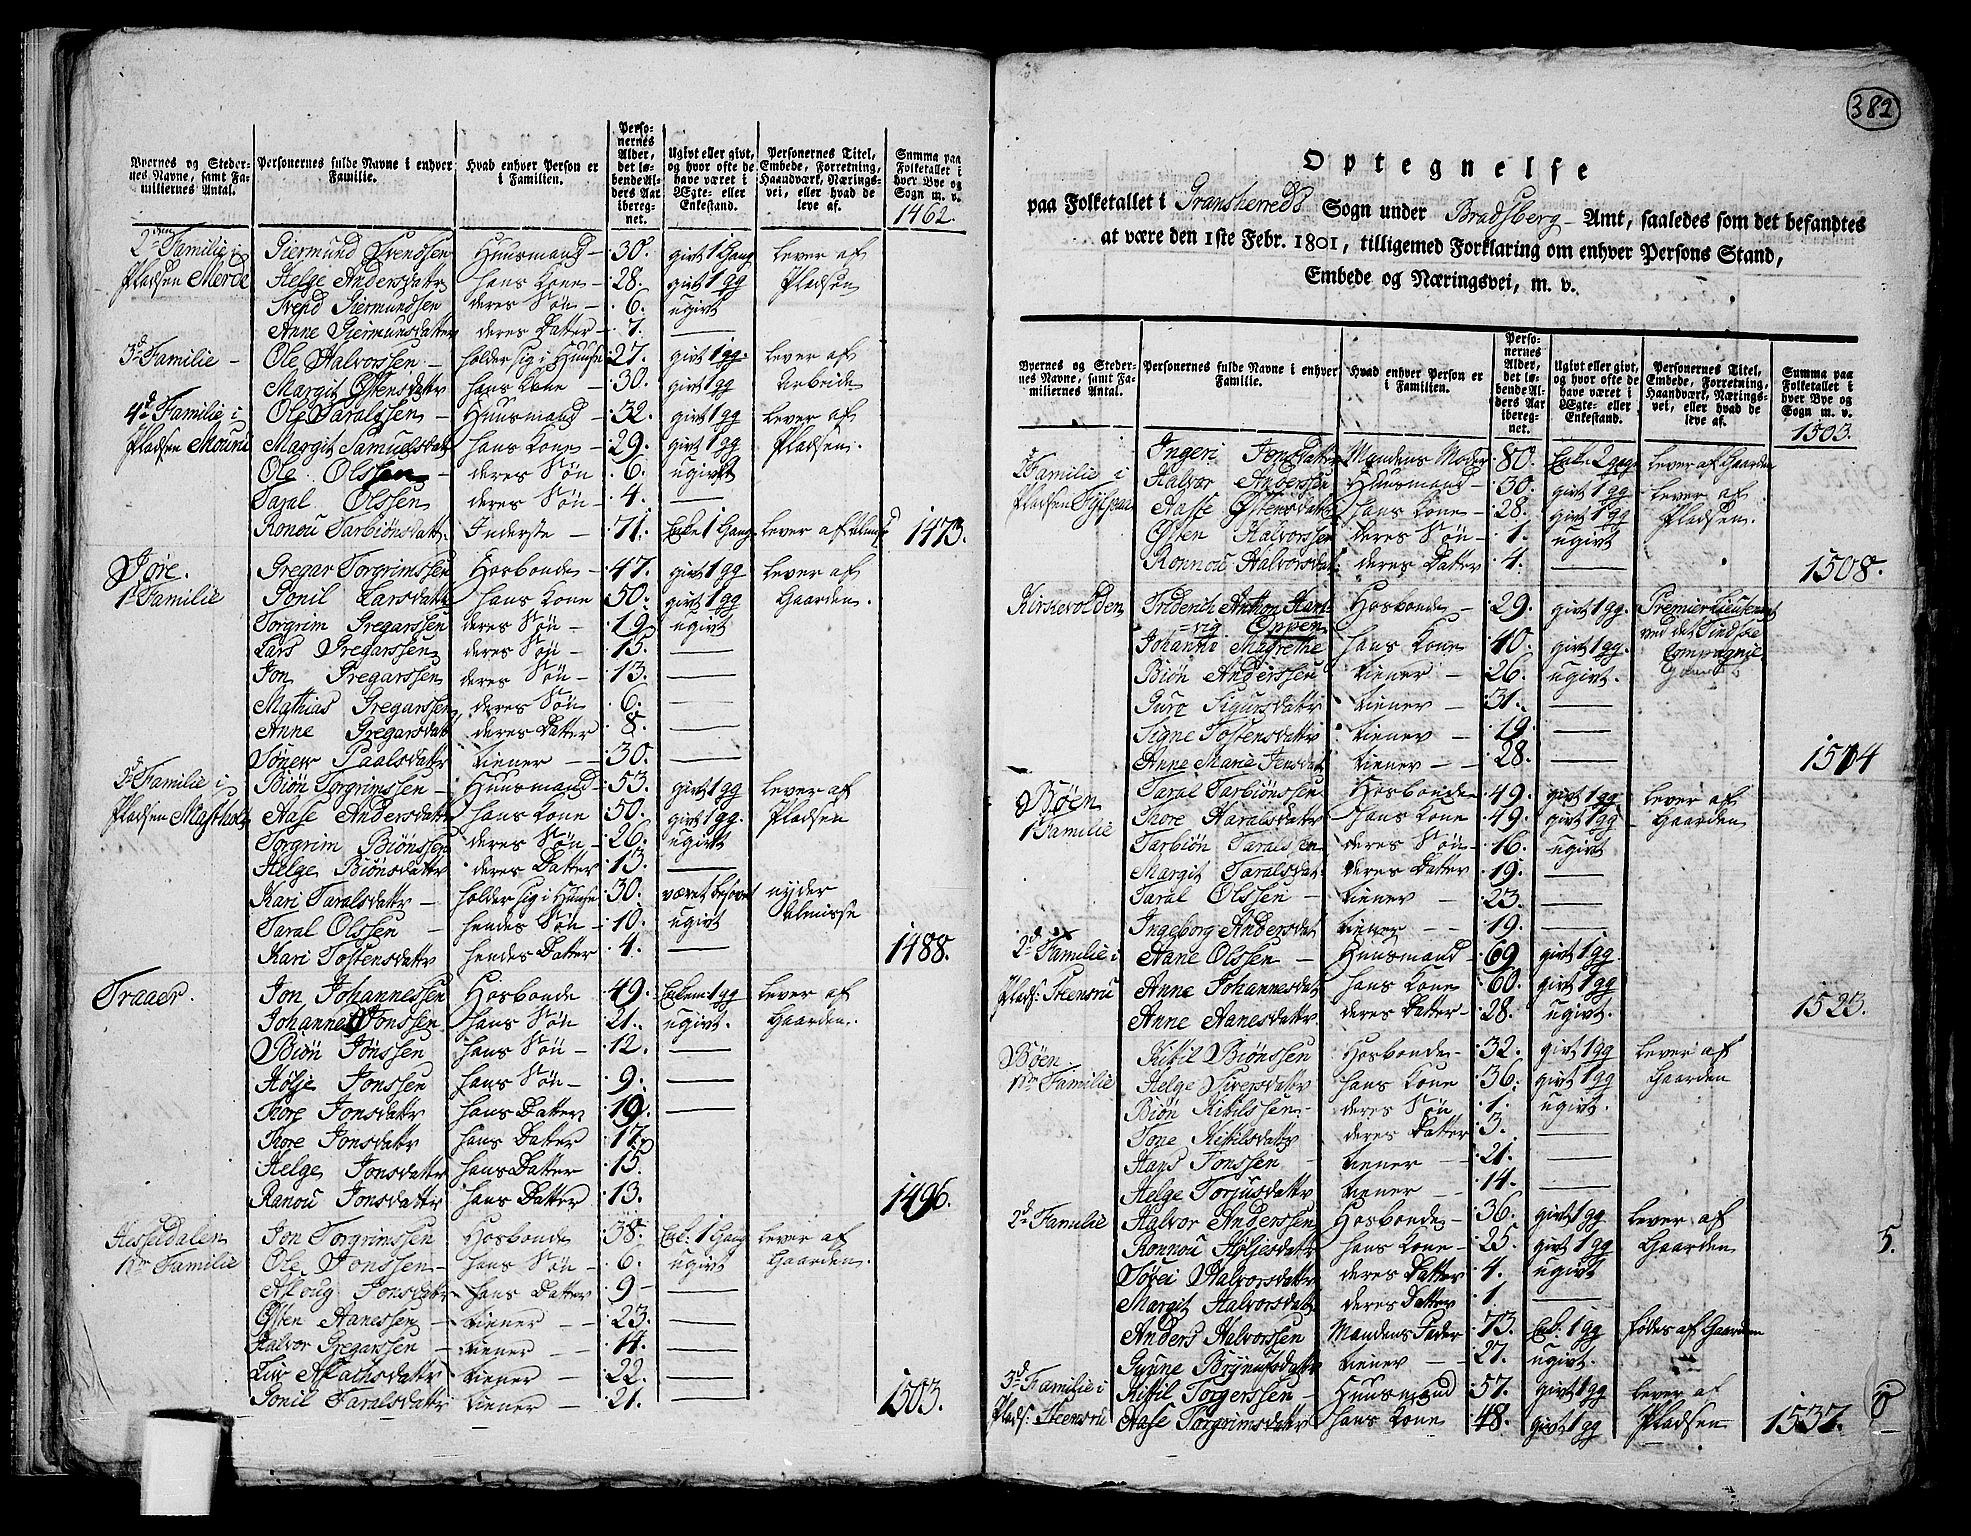 Byernes og Steder- nes Navne, samt Fa- miliernes Antal. | Personernes fulde Navne i enhver Familie. | Hvad enhver Person er i Familien. | Perso- nernes Alder, det lø- bende Al- ders Aar iberegnet. | Ugivt eller givt, og hvor ofte de have været i Ægte- eller Enkestand. | Personernes Titel, Embede, Forretning, Haandværk, Nærings- vei, eller hvad de leve af. | Summa paa Folketallet i hver Bye og Sogn m. v.
1462.
2den Familie i | Giermund Svendsen | Huusmand | 30. | givt 1 Gang | lever af
Pladsen Merde | Helge Andersdattr | hans Kone | 28. | givt 1 gg | Pladsen
Svend Giermundsen | deres Søn | 6. | ugivt
Anne Giermunsdatter | deres Datter | 7. | —
3d Familie | Ole Halvorssen | holder sig i Huuse | 27. | givt 1 gg. | lever af
Margit Østensdattr | hans Kone | 30. | givt 1 gg | Arbeide
4d Familie i | Ole Taralssen | Huusmand | 32. | givt 1 gg | lever af
Pladsen Mourie | Margit Samuelsdatr | hans Kone | 29. | givt 1 gg | Pladsen.
Ole Olssen | deres Søn | 6. | ugivt
Taral Olssen | deres Søn | 4. | —
Ronou Tarbiønsdattr | Inderste | 71. | Enke 1 Gang | lever af | 1473.
Jøre. | Gregar Torgrimssen | Hosbonde | 47. | givt 1 gg | lever af
1 Familie | Gonil Larsdattr | hans Kone | 50. | givt 1 gg | Gaarden.
Torgrim Gregarssen | deres Søn | 19. | ugivt
Lars Gregarssen | deres Søn | 15. | —
Jon Gregarssen | deres Søn | 13. | —
Mathias Gregarssen | deres Søn | 6. | —
Anne Gregarsdattr | deres Datter | 8. | —
Paalsdattr | tiener | 30. | —
2d Familie i | Biøn Torgrimssen | Huusmand | 53. | givt 1 gg | lever af
Pladsen | Aase Andersdattr | hans Kone | 50. | givt 1 gg. | Pladsen
Torgrim Biønssen | deres Søn | 26. | ugivt
Helge Biønsdattr | deres Datter | 13. | —
Kari Taralsdattr | holder sig i Huuse | 30. | været besovet | nyder
Taral Olssen | hendes Søn | 10. | ugivt | Almisse
Kari Tostensdattr | hendes Datter | 4. | — | 1488.
Traaer. | Jon Johannessen | Hosbonde | 49. | Enkem 1 gg | lever af
Johannes Jonssen | hans Søn | 21. | ugivt. | Gaarden.
Biøn Jonssen | hans Søn | 12. | —
Hølje Jonssen | hans Søn | 9. | —
Thore Jonsdattr | hans Datter | 19. | —
Thore Jonsdattr | hans Datter | 17.
Helge Jonsdattr | hans Datter | 15.
Ranou Jonsdattr | hans Datter | 13. | 1496.
Jon Torgrimssen | Hosbonde | 38. | Enk: 1 Gang | lever af
1ste Familie | Ole Jonssen | hans Søn | 6. | ugivt | Gaarden.
Asloug Jonsdattr | hans Datter | 9 | —
Østen Aanessen | tiener | 23. | —
Halvor Gregarssen | tiener | 14. | —
Liv Aslachsdattr | tiener | 22. | —
Gonil Taralsdattr | tiener | 21. | — | 1503.
382
Optegnelse
paa Folketallet i Gransherreds Sogn under Bradsberg Amt, saaledes som det befandtes
at være den 1ste Febr. 1801, tilligemed Forklaring om enhver Persons Stand,
Embede og Næringsvei, m. v.
Byernes og Steder- nes Navne, samt Fa- miliernes Antal. | Personernes fulde Navne i enhver Familie. | Hvad enhver Person er i Familien. | Perso- nernes Alder, det lø- bende Al- ders Aar iberegnet. | Ugivt eller givt, og hvor ofte de have været i Ægte- eller Enkestand. | Personernes Titel, Embede, Forretning, Haandværk, Nærings- vei, eller hvad de leve af. | Summa paa Folketallet i hver Bye og Sogn m. v.
1503.
Ingeri Jensdatter | Mandens Moder | 80. | Enke 2 gg | lever af Gaarden
2 Familie i | Halvor Anderssen | Huusmand | 30. | givt 1 gg | lever af
Pladsen | Aasse Østensdattr | hans Kone | 28. | givt 1 gg | Pladsen.
Østen Halvorssen | deres Søn | 1. | ugivt
Ronnou Halvorsdatr | deres Datter | 4. | — | 1508.
Kirkevolden | Friderich Anthon Hart- | Hosbonde | 29. | givt 1 gg. | Premier Lieutenant
=vig | ved det Tindske
Johanne Magrethe | hans Kone | 40. | givt 1 gg. | Compagnie
Biøn Anderssen | tiener | 26. | ugivt.
Guro Sigursdattr | tiener | 31. | —
Signe Tostensdattr | tiener | 19. | —
Anne Marie Jensdatr | tiener | 28. | — | 1514
Bøen | Taral Tarbiønssen | Hosbonde | 49. | givt 1 gg | lever af
1 Familie | Thore Haralsdattr | hans Kone | 49. | givt 1 gg | Gaarden
Tarbiøn Taralssen | deres Søn | 16. | ugivt
Margit Taralsdat | deres Datter | 19. | —
Taral Olssen | tiener | 23. | —
Ingeborg Andersdat | tiener | 19. | —
2d Familie i | Aane Olssen | Huusmand | 69 | givt 1 gg.
Plads: Steensru | Anne Johannesdat | hans Kone | 60. | givt 1 gg
Anne Aanesdattr. | deres Datter | 28. | ugivt. | 1523.
Bøen | Kittil Biønssen | Hosbonde | 32. | givt 1 gg | lever af
1ste Familie | Helge Siversdattr | hans Kone | 36. | givt 1 gg | Gaarden
Biøn Kittilssen | deres Søn | 1. | ugivt.
Tone Kittilsdattr | deres Datter | 3. | —
Hans Jonssen | tiener | 21. | —
Helge Torjusdattr | tiener | 14. | —
2d Familie | Halvor Anderssen | Hosbonde | 36. | givt 1 gg | lever af
Ronnou Høljesdattr | hans Kone | 25. | givt 1 gg | Gaarden | 5.
Halvorsdattr | deres Datter | 4. | ugivt
Margit Halvorsdatr | deres Datter | 1. | —
Anders Halvorssen | Mandens Fader | 73. | Enk: 1 gg | fødes af Gaarden
Brynulfsdattr | tiener | 27. | ugivt.
3d Familie i | Kittil Torgerssen | Huusmand | 57. | givt 1 gg | lever af
Plads: Steensru | Aase Torgrimsdattr | hans Kone | 48. | givt 1 gg | Pladsen | 1537.